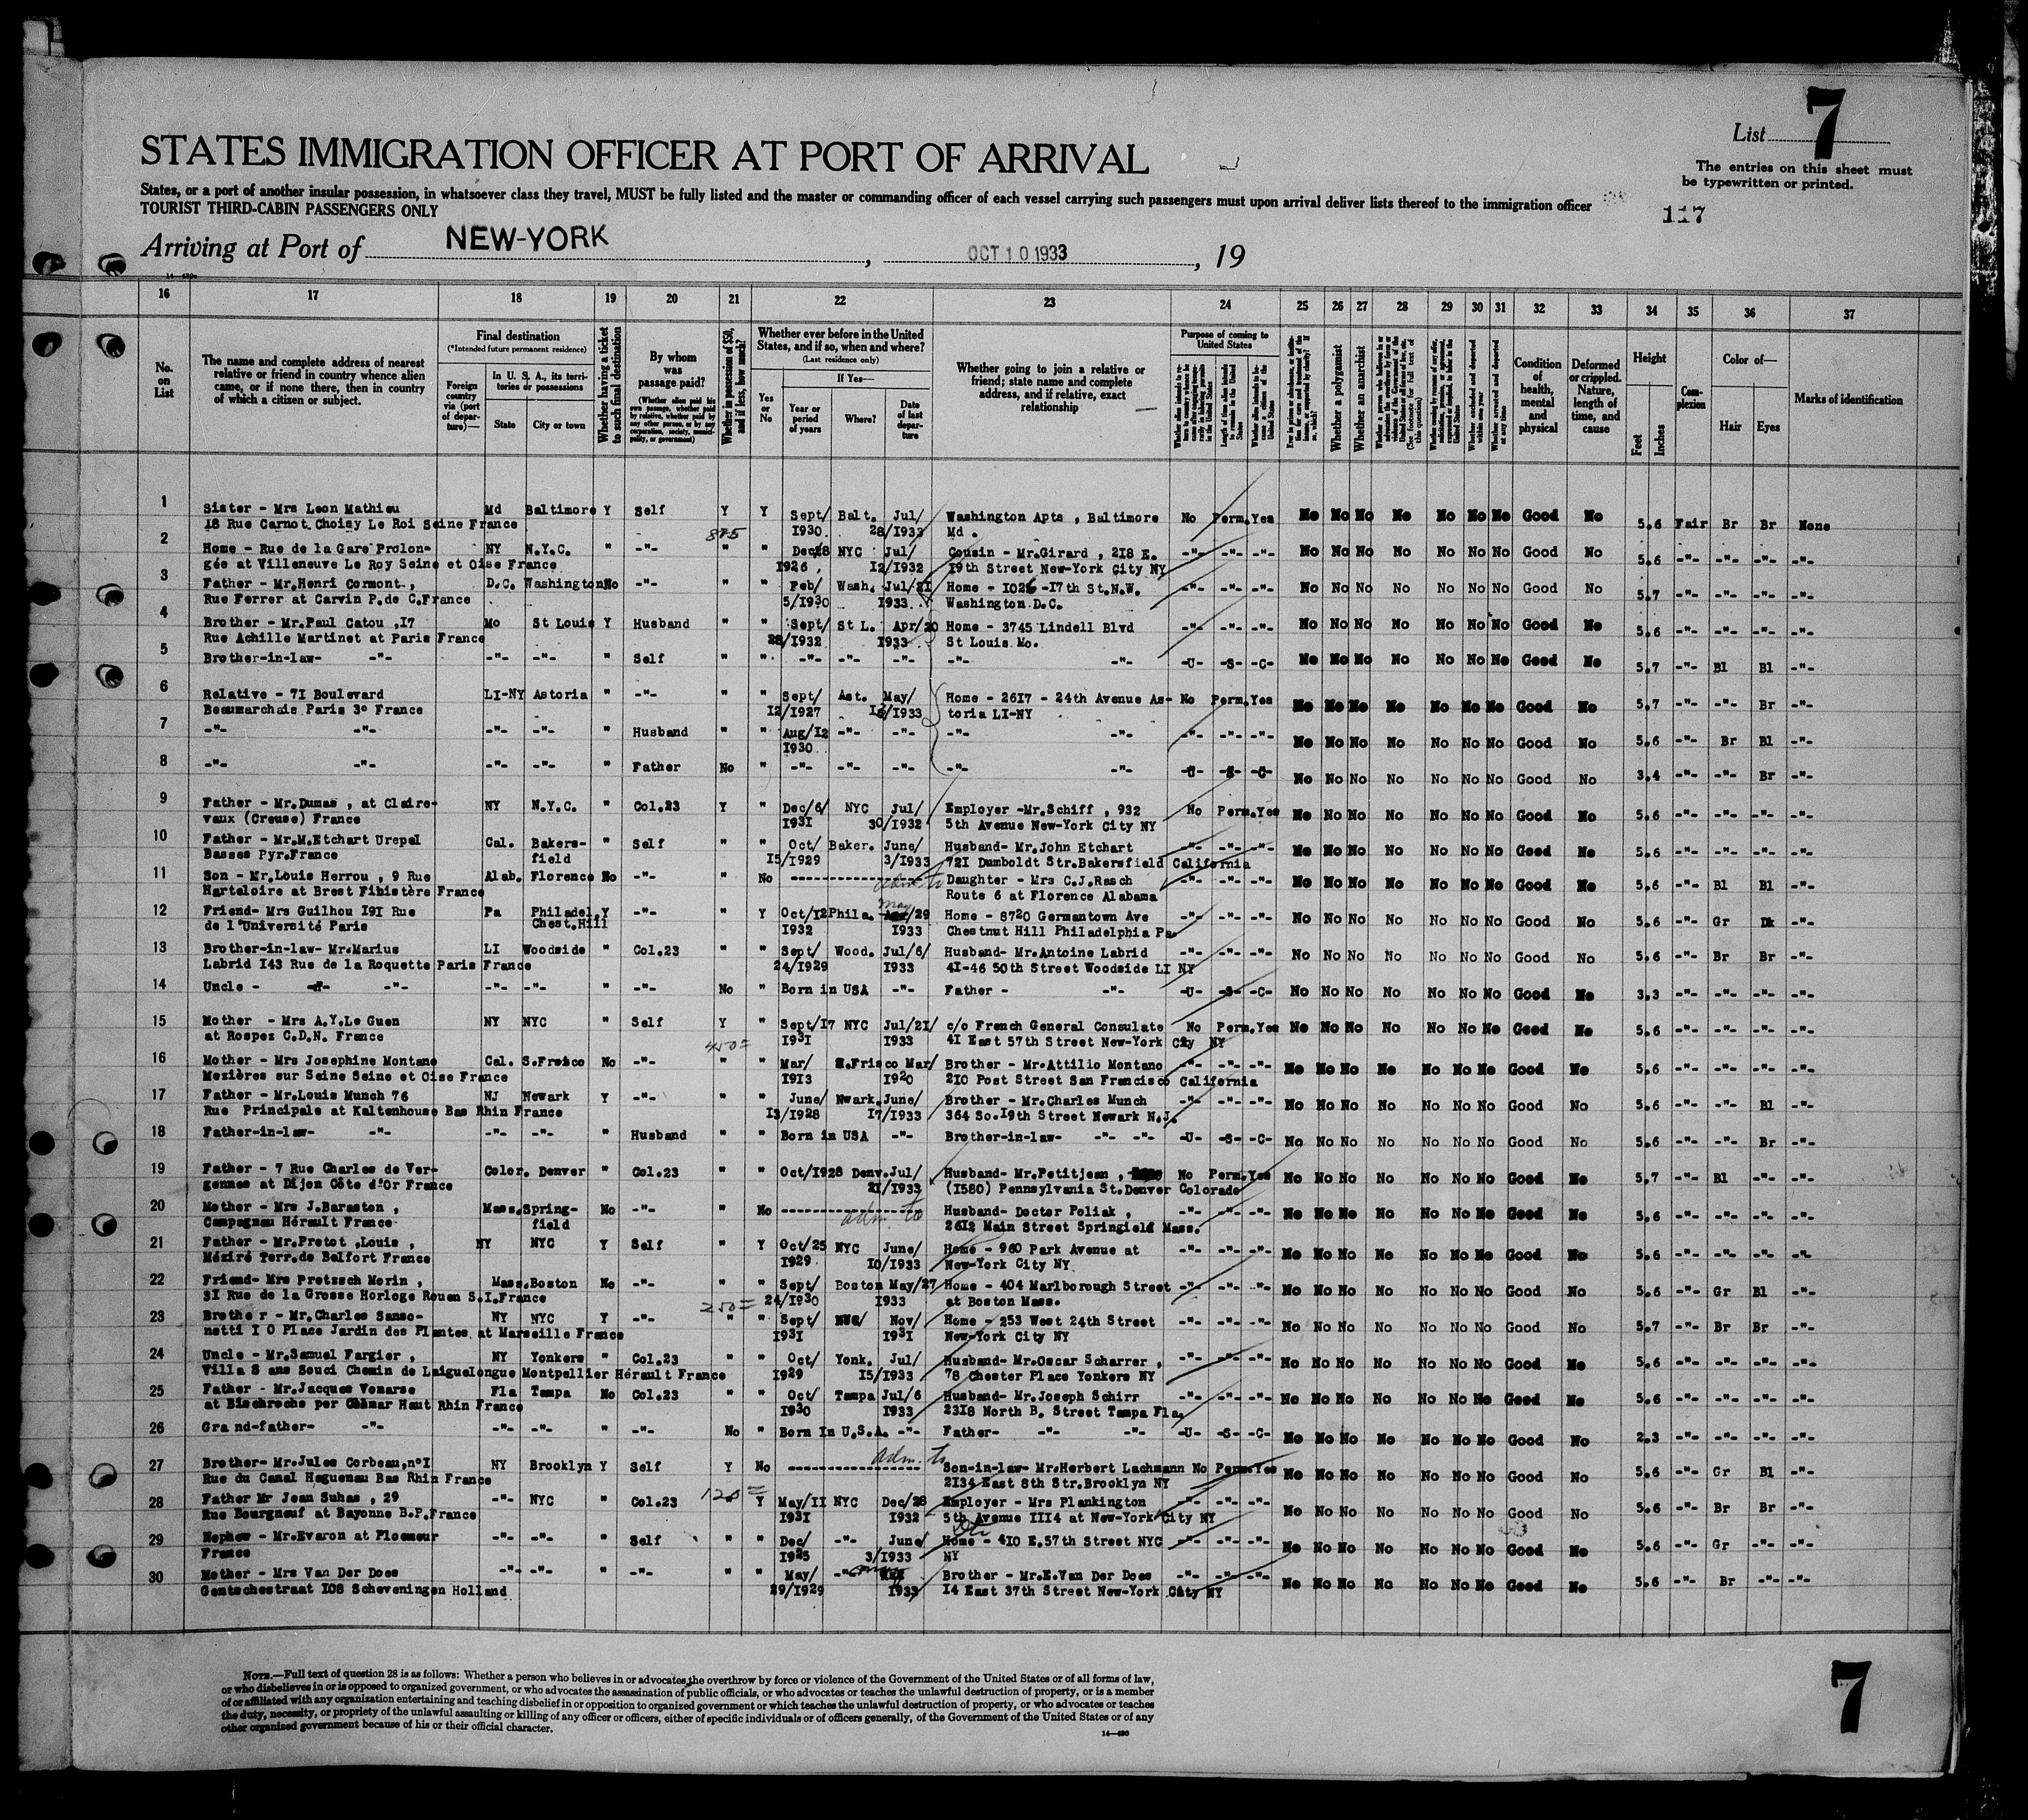 7
List
The entries on this sheet must
be typewritten or printed.
STATES IMMIGRATION OFFICER AT PORT OF ARRIVAL
States, or a port of another insular possession, in whatsoever class they travel, MUST be fully listed and the master or commanding officer of each vessel carrying such passengers must upon arrival deliver lists thereof to the immigration officer
TOURIST THIRD-CABIN PASSENGERS ONLY
117
Arriving at Port of NEW-YORK, OCT 10 1933, 19
16 17 18 19 20 21 22 23 24 25 26 27 28 29 30 31 32 33 34 35 36 37
No. on List
The name and complete address of nearest relative or friend in country whence alien came, or if none there, then in country of which a citizen or subject.
Final destination
(*Intended future permanent residence)
Foreign country via (port of departure)—
In U. S. A., its territories or possessions
State
City or town
Whether having a ticket to such final destination
By whom was passage paid?
(Whether alien paid his own passage, whether paid by relative, whether paid by any other person, or by any corporation, society, municipality, or government)
Whether in possession of $50, and if less, how much?
Whether ever before in the United States, and if so, when and where?
(Last residence only)
Yes or No
If Yes—
Year or period of years
Where?
Date of last departure
Whether going to join a relative or friend; state name and complete address, and if relative, exact relationship
Purpose of coming to United States
Whether a polygamist
Whether an anarchist
(See footnote for full text of this question)
Condition of health, mental and physical
Deformed or crippled. Nature, length of time, and cause
Height
Feet
Inches
Complexion
Color of—
Hair
Eyes
Marks of identification
1 Sister - Mrs Leon Mathieu Md Baltimore Y Self Y Y Sept/ Balt. Jul/ Washington Apts , Baltimore No Perm.Yes No No No No No No No Good No 5.6 Fair Br Br None
18 Rue Carnot Choisy Le Roi Seine France 1930 28/1933 Md .
2 Home - Rue de la Gare Prolon- NY N.Y.C. " -"- " " Dec28 NYC Jul/ Cousin - Mr.Girard , 218 E. -"- -"- -"- No No No No No No No Good No 5.6 -"- -"- -"- -"-
gée at Villeneuve Le Roy Seine et Oise France 1926 12/1932 19th Street New-York City NY
3 Father - Mr.Henri Cormont , D.C. Washington No -"- " " Feb/ Wash. Jul/21 Home - 1026 -17th St.N.W. -"- -"- -"- No No No No No No No Good No 5.7 -"- -"- -"- -"-
Rue Ferrer at Carvin P.de C.France 5/1930 1933 Washington D.C.
4 Brother - Mr.Paul Catou ,17 Mo St Louis Y Husband " " Sept/ St L. Apr/20 Home - 3745 Lindell Blvd -"- -"- -"- No No No No No No No Good No 5.6 -"- -"- -"- -"-
Rue Achille Martinet at Paris France 28/1932 1933 St Louis Mo.
5 Brother-in-law- -"- -"- -"- " Self " " -"- -"- -"- -"- -"- -U- -S- -C- No No No No No No No Good No 5.7 -"- Bl Bl -"-
6 Relative - 71 Boulevard LI-NY Astoria " -"- " " Sept/ Ast. May/ Home - 2617 - 24th Avenue As- No Perm.Yes No No No No No No No Good No 5.7 -"- -"- Br -"-
Beaumarchais Paris 3° France 12/1927 /1933 toria LI-NY
7 -"- -"- -"- -"- " Husband " " Aug/12 -"- -"- -"- -"- -"- -"- -"- No No No No No No No Good No 5.6 -"- Br Bl -"-
1930
8 -"- -"- -"- -"- " Father No " -"- -"- -"- -"- -"- -U- -S- -C- No No No No No No No Good No 3.4 -"- -"- Br -"-
9 Father - Mr.Dumas , at Claire- NY N.Y.C. " Col.23 Y " Dec/6/ NYC Jul/ Employer -Mr.Schiff , 932 No Perm.Yes No No No No No No No Good No 5.6 -"- -"- -"- -"-
vaux (Creuse) France 1931 30/1932 5th Avenue New-York City NY
10 Father - Mr.M.Etchart Urepel Cal. Bakers- " Self " " Oct/ Baker. June/ Husband- Mr.John Etchart -"- -"- -"- No No No No No No No Good No 5.6 -"- -"- -"- -"-
Basses Pyr.France field 15/1929 3/1933 721 Dumboldt Str.Bakersfield California
11 Son - Mr.Louis Herrou , 9 Rue Alab. Florence No -"- " No adm. to Daughter - Mrs C.J.Rasch -"- -"- -"- No No No No No No No Good No 5.6 -"- Bl Bl -"-
Harteloire at Brest Finistère France Route 6 at Florence Alabama
12 Friend- Mrs Guilhou 191 Rue Pa Philadel. Y -"- " Y Oct/12 Phila. May/29 Home - 8720 Germantown Ave -"- -"- -"- No No No No No No No Good No 5.6 -"- Gr Dk -"-
de l'Université Paris Chest.Hill 1932 1933 Chestnut Hill Philadelphia Pa.
13 Brother-in-law- Mr.Marius LI Woodside " Col.23 " " Sept/ Wood. Jul/6/ Husband- Mr.Antoine Labrid -"- -"- -"- No No No No No No No Good No 5.6 -"- Br Br -"-
Labrid 143 Rue de la Roquette Paris France 24/1929 1933 41-46 50th Street Woodside LI NY
14 Uncle - -"- -"- -"- -"- " -"- No " Born in USA -"- Father - -"- -U- -S- -C- No No No No No No No Good No 3.3 -"- -"- -"- -"-
15 Mother - Mrs A.Y.Le Guen NY NYC " Self Y " Sept/17 NYC Jul/21/ c/o French General Consulate No Perm.Yes No No No No No No No Good No 5.6 -"- -"- -"- -"-
at Rospez C.D.N. France 1931 1933 41 East 57th Street New-York City NY
16 Mother - Mrs Josephine Montano Cal. S.Frsico No -"- 450= " " Mar/ S.Frisco Mar/ Brother - Mr.Attilio Montano -"- -"- -"- No No No No No No No Good No 5.6 -"- -"- -"- -"-
Mezières sur Seine Seine et Oise France 1913 1920 210 Post Street San Francisco California
17 Father - Mr.Louis Munch 76 NJ Newark Y -"- " " June/ Nwark. June/ Brother - Mr.Charles Munch -"- -"- -"- No No No No No No No Good No 5.6 -"- -"- Bl -"-
Rue Principale at Kaltenhouse Bas Rhin France 13/1928 17/1933 364 So.19th Street Newark N.J.
18 Father-in-law- -"- -"- -"- " Husband " " Born in USA -"- Brother-in-law- -"- -"- -U- -S- -C- No No No No No No No Good No 5.6 -"- -"- Br -"-
19 Father - 7 Rue Charles de Ver- Color. Denver " Col.23 " " Oct/1928 Denv. Jul/ Husband- Mr.Petitjean , No Perm.Yes No No No No No No No Good No 5.7 -"- Bl -"- -"-
gennes at Dijon Côte d'Or France 21/1933 (1580) Pennsylvania St.Denver Colorado
20 Mother - Mrs J.Baraston , Mass. Spring- No -"- " No adm. to Husband- Doctor Poliak , -"- -"- -"- No No No No No No No Good No 5.6 -"- -"- -"- -"-
Campagnan Hérault France field 2612 Main Street Springield Mass.
21 Father - Mr.Pretot ,Louis , NY NYC Y Self " Y Oct/25 NYC June/ Home - 960 Park Avenue at -"- -"- -"- No No No No No No No Good No 5.6 -"- -"- -"- -"-
Méziré Terr.de Belfort France 1929 10/1933 New-York City NY
22 Friend- Mrs Pretzsch Morin , Mass. Boston No -"- " " Sept/ Boston May/27 Home - 404 Marlborough Street -"- -"- -"- No No No No No No No Good No 5.6 -"- Gr Bl -"-
31 Rue de la Grosse Horloge Rouen S.I.France 24/1930 1933 at Boston Mass.
23 Brother - Mr.Charles Sanso- NY NYC Y -"- 250= " " Sept/ Nov/ Home - 253 West 24th Street -"- -"- -"- No No No No No No No Good No 5.7 -"- Br Br -"-
netti 1 0 Place Jardin des Plantes at Marseille France 1931 1931 New-York City NY
24 Uncle - Mr.Samuel Fargier , NY Yonkers " Col.23 " " Oct/ Yonk. Jul/ Husband- Mr.Oscar Scharrer , -"- -"- -"- No No No No No No No Good No 5.6 -"- -"- -"- -"-
Villa S ans Souci Chemin de Laiguelongue Montpellier Hérault France 1929 15/1933 78 Chester Place Yonkers NY
25 Father - Mr.Jacques Vonarse Fla Tampa No Col.23 " " Oct/ Tampa Jul/6 Husband- Mr.Joseph Schirr -"- -"- -"- No No No No No No No Good No 5.6 -"- -"- -"- -"-
per Colmar Haut Rhin France 1930 1933 2318 North B. Street Tampa Fla.
26 Gra nd-father- -"- -"- -"- " -"- No " Born In U.S.A. -"- Father- -"- -"- -U- -S- -C- No No No No No No No Good No 2.3 -"- -"- -"- -"-
27 Brother- Mr.Jules Corbeau,n°1 NY Brooklyn Y Self Y No adm. to Son-in-law- Mr.Herbert Lachmann No Perm.Yes No No No No No No No Good No 5.6 -"- Gr Bl -"-
Rue du Canal Haguenau Bas Rhin France 2134 East 8th Str.Brooklyn NY
28 Father Mr Jean Suhas , 29 -"- NYC " Col.23 120= Y May/11 NYC Dec/28 Employer - Mrs Plankington -"- -"- -"- No No No No No No No Good No 5.6 -"- Br Br -"-
Rue Bourgneuf at Bayonne B.P.France 1931 1932 5th Avenue 1114 at New-York City NY
29 Nephew - Mr.Evaron at Ploemeur -"- -"- " Self " " Dec/ -"- June/ Home - 410 E.57th Street NYC -"- -"- -"- No No No No No No No Good No 5.6 -"- Gr -"- -"-
France 1925 3/1933 NY
30 Mother - Mrs Van Der Does -"- -"- " -"- " " May/ -"- Brother - Mr.E.Van Der Does -"- -"- -"- No No No No No No No Good No 5.6 -"- Br -"- -"-
Gentschestraat 108 Scheveningen Holland 29/1929 1933 14 East 37th Street New-York City NY
NOTE.—Full text of question 28 is as follows: Whether a person who believes in or advocates the overthrow by force or violence of the Government of the United States or of all forms of law,
or who disbelieves in or is opposed to organized government, or who advocates the assassination of public officials, or who advocates or teaches the unlawful destruction of property, or is a member
of or affiliated with any organization entertaining and teaching disbelief in or opposition to organized government or which teaches the unlawful destruction of property, or who advocates or teaches
the duty, necessity, or propriety of the unlawful assaulting or killing of any officer or officers, either of specific individuals or of officers generally, of the Government of the United States or of any
other organized government because of his or their official character.
14—430
7